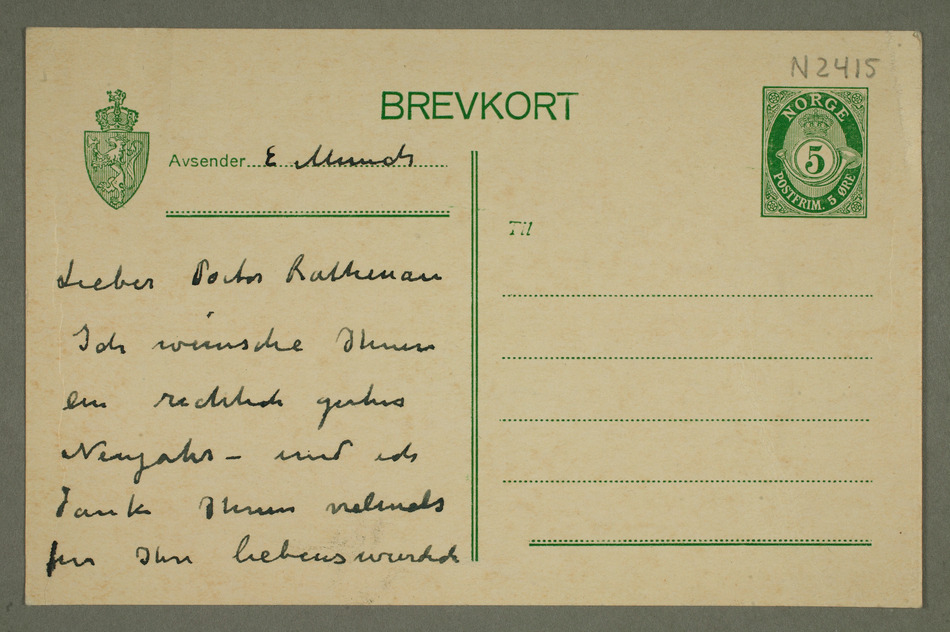 N2415
BREVKORT
NORGE
5
POSTFRIM. 5 ØRE
Avsender E Munch
Til
Lieber Doctor Rathenau
Ich wünsche Ihnen
ein rechtech gutes
Neujahr – und ich
danke Ihnen vielmals
für Ihre liebenswürdich